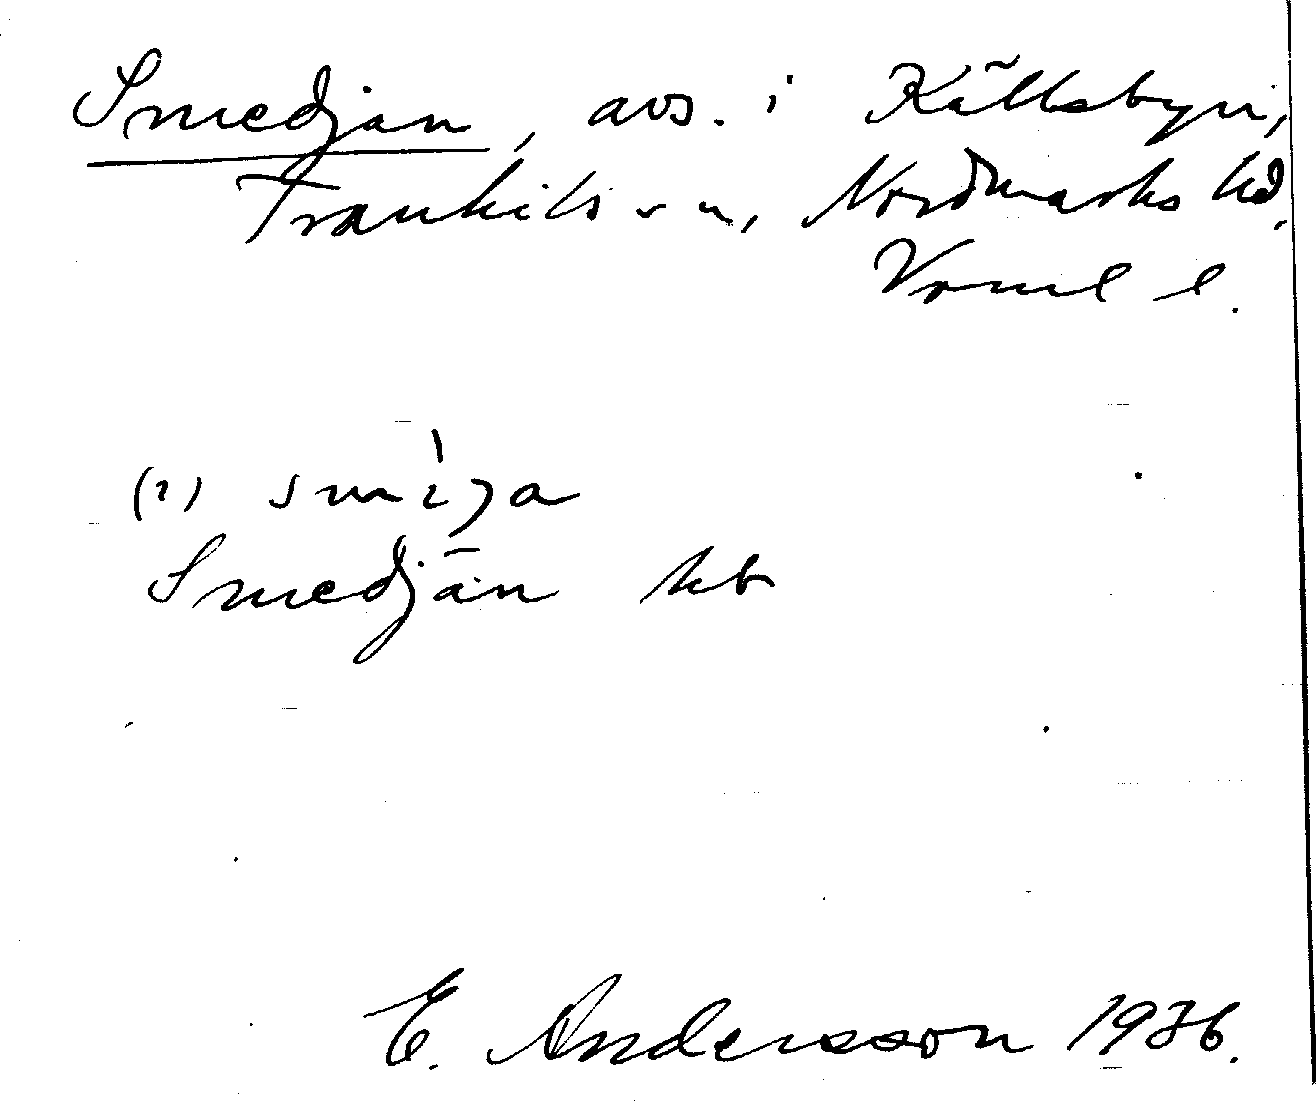 Smedjan, avs. i Källsbyn,
Trankils sn, Nordmarks hd,
Vrml l.
(i) smìja
Smedjan kb
E. Andersson 1936.